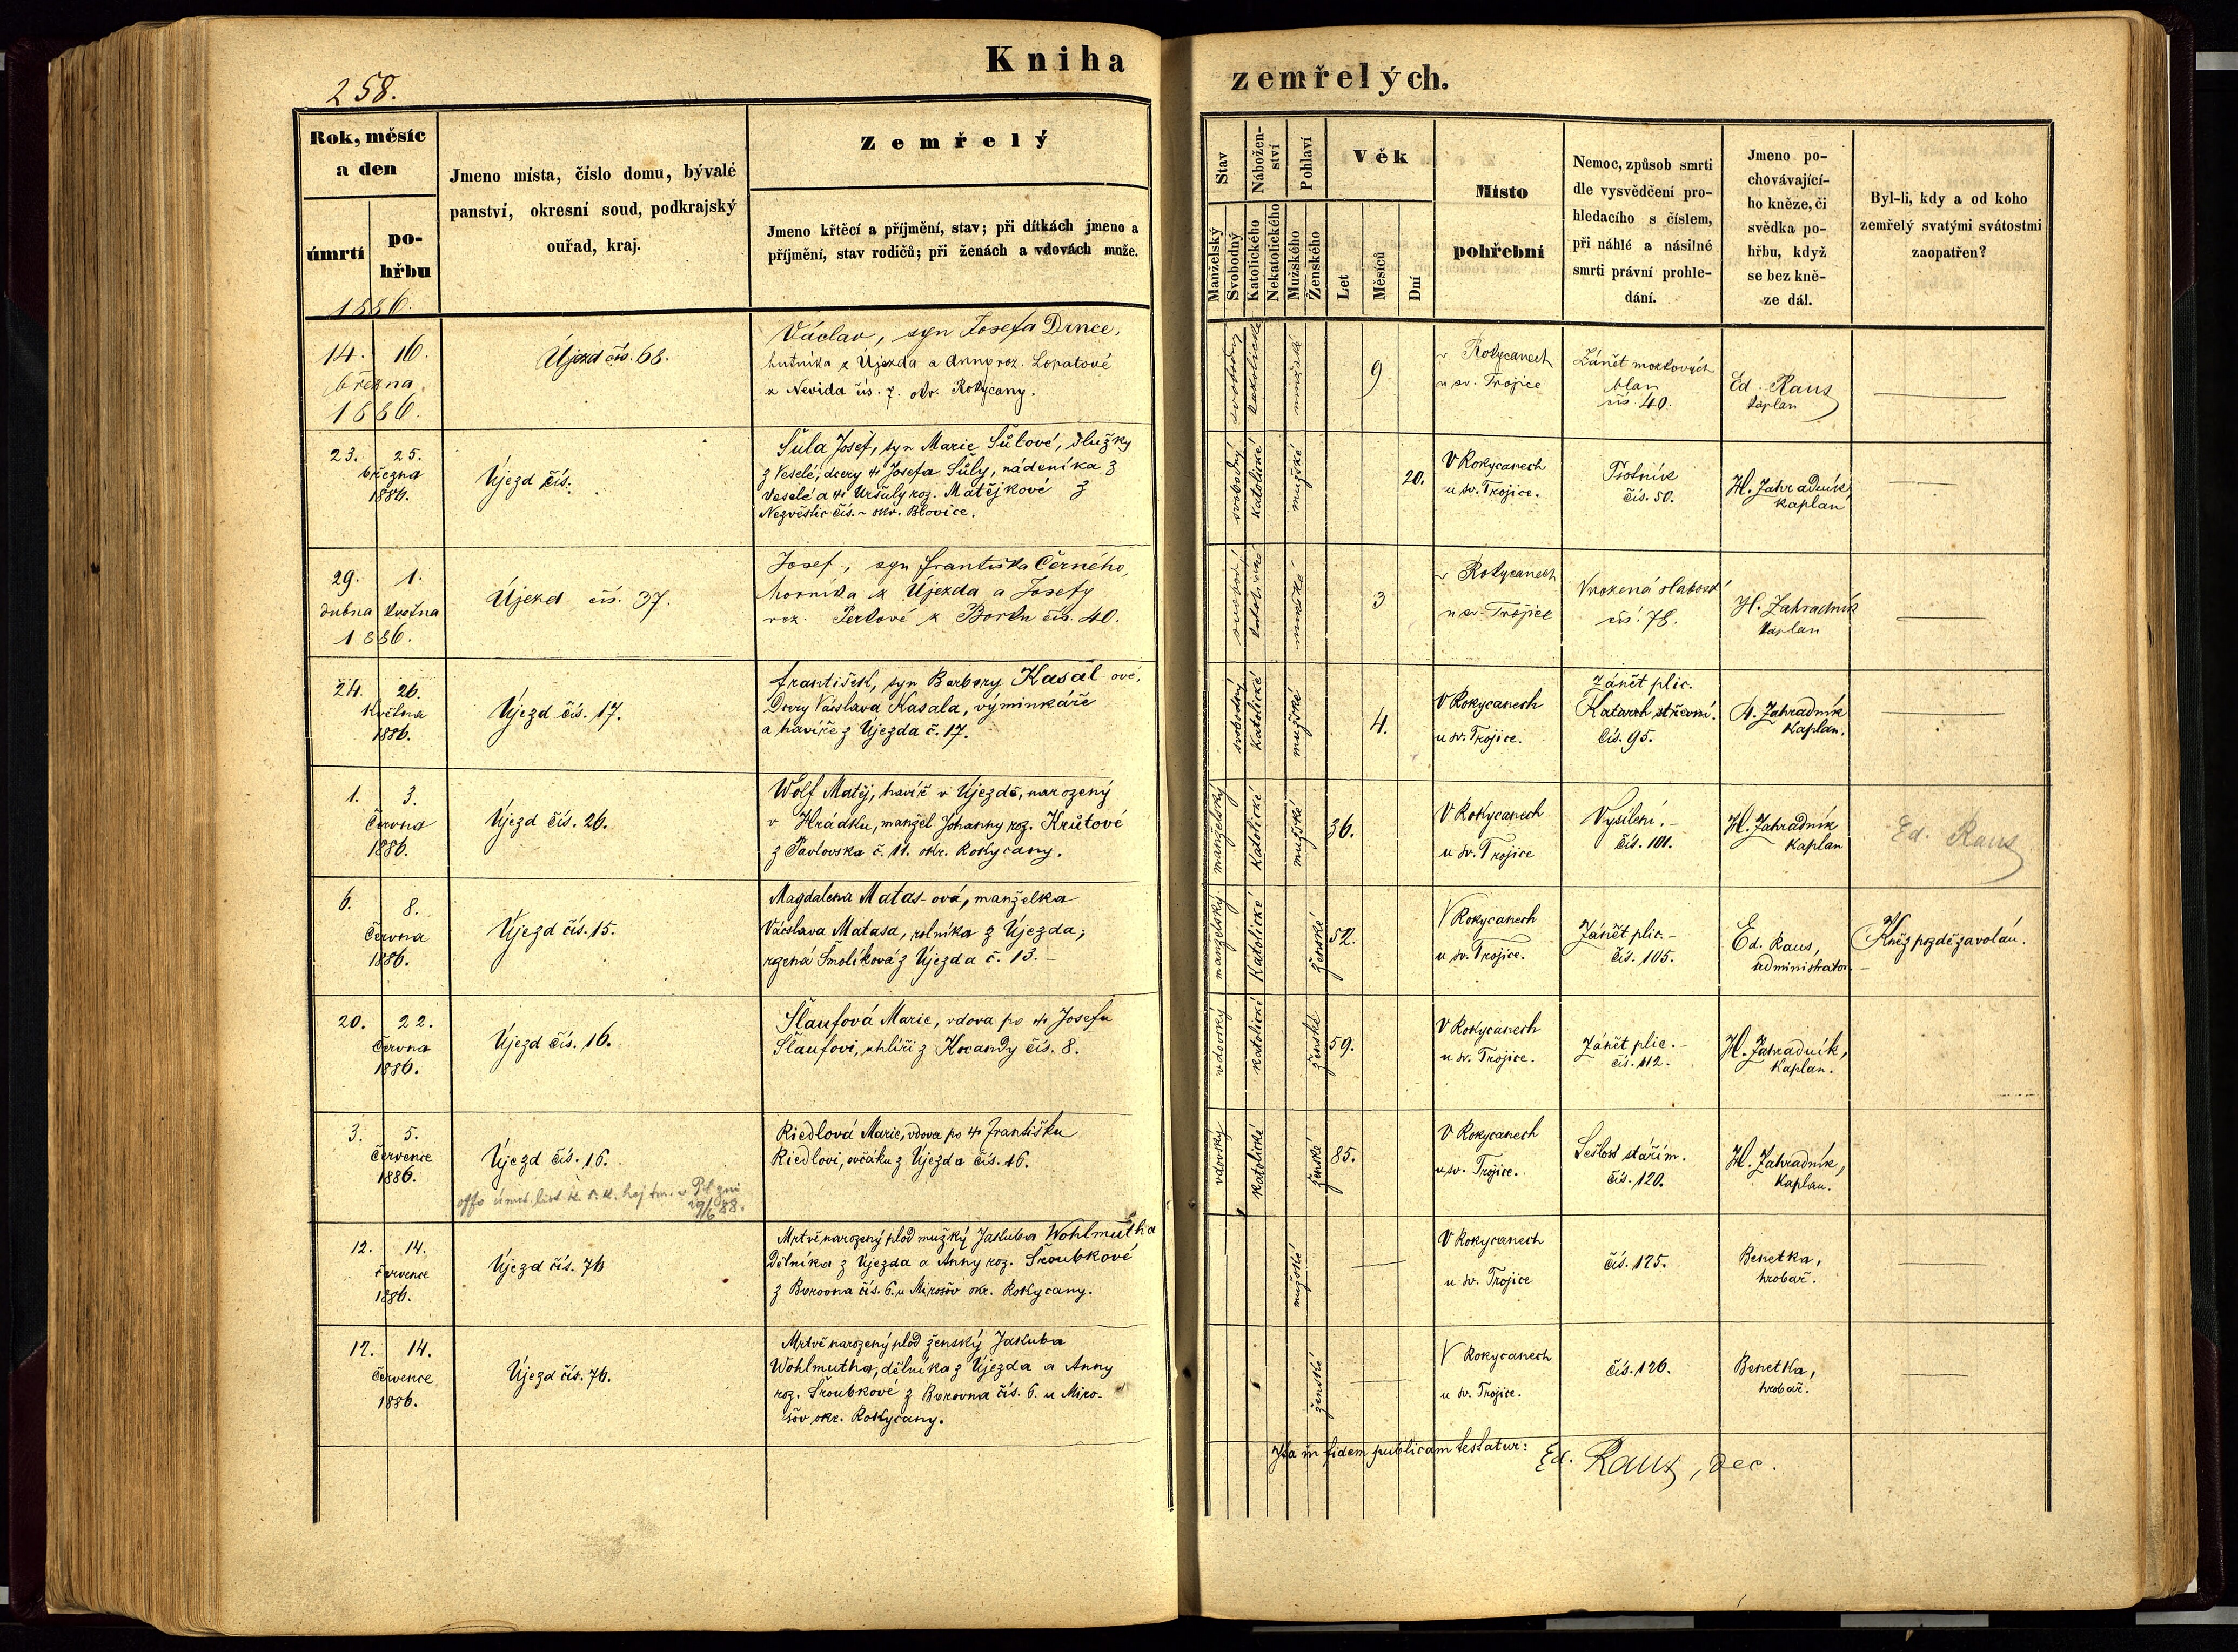 258.
Kniha zemřelých.
Rok, měsíc
a den
úmrtí
po-
hřbu
1886.
Jmeno místa, číslo domu, bývalé
panství, okresní soud, podkrajský
ouřad, kraj.
Zemřelý
Jmeno křtěcí a příjmění, stav; při dítkách jmeno a
příjmění, stav rodičů; při ženách a vdovách muže.
Stav
Manželský
Svobodný
Nábožen-
ství
Katolického
Nekatolického
Pohlaví
Mužského
Ženského
Věk
Let
Měsíců
Dní
Místo
pohřební
Nemoc, způsob smrti
dle vysvědčení pro-
hledacího s číslem,
při náhlé a násilné
smrti právní prohle-
dání.
Jmeno po-
chovávající-
ho kněze, či
svědka po-
hřbu, když
se bez kně-
ze dál.
Byl-li, kdy a od koho
zemřelý svatými svátostmi
zaopatřen?
14. 16.
března
1886.
Újezd čís. 68.
Václav, syn Josefa Drnce,
hutníka z Újezda a Anny roz. Lopatové
z Nevida čís. 7. okr. Rokycany.
svobodný
katolické
mužské
9
v Rokycanech
u sv. Trojice
Zánět mozkových
blan
čís. 40.
Ed. Raus
kaplan
23. 25.
března
1886.
Újezd čís.
Šůla Josef, syn Marie Šůlové, služky
z Veselé, dcery † Josefa Šůly, nádeníka z
Veselé a † Uršuly roz. Matějkové z
Nezvěstic čís. ~ okr. Blovice.
svobodný
katolické
mužské
20.
V Rokycanech
u sv. Trojice.
Psotník
čís. 50.
H. Zahradník
kaplan
29. 1.
dubna května
1886.
Újezd čís. 37.
Josef, syn Františka Černého,
horníka z Újezda a Josefy
roz. Perlové z Borku čís. 40.
svobodný
katolické
mužské
3
v Rokycanech
u sv. Trojice
Vrozená slabost
čís. 78.
H. Zahradník
kaplan
24. 26.
května
1886.
Újezd čís. 17.
František, syn Barbory Kasalové,
dcery Václava Kasala, výminkáře
a havíře z Újezda č. 17.
svobodný
katolické
mužské
4.
V Rokycanech
u sv. Trojice.
Zánět plic.
Katarrh střevní.
čís. 95.
H. Zahradník
kaplan.
1. 3.
června
1886.
Újezd čís. 26.
Wolf Matěj, havíř v Újezdě, narozený
v Hrádku, manžel Johanny roz. Krůtové
z Pavlovska č. 11. okr. Rokycany.
manželský
katolické
mužské
36.
V Rokycanech
u sv. Trojice
Vysílení. –
čís. 101.
H. Zahradník
kaplan
Ed. Raus
6. 8.
června
1886.
Újezd čís. 15.
Magdalena Matas-ová, manželka
Václava Matasa, rolníka z Újezda;
rzená Smolíková z Újezda č. 13. –
manželský
katolické
ženské
52.
V Rokycanech
u sv. Trojice.
Zánět plic. –
čís. 105.
Ed. Raus,
administrator.
Kněz pozdě zavolán.
20. 22.
června
1886.
Újezd čís. 16.
Šlaufová Marie, vdova po † Josefu
Šlaufovi, uhlíři z Kocandy čís. 8.
vdovský
katolické
ženské
59.
V Rokycanech
u sv. Trojice.
Zánět plic. –
čís. 112.
H. Zahradník,
kaplan.
3. 5.
července
1886.
Újezd čís. 16.
offo úmrt. list k. k. hejtm. v Plzni
29/6 88.
Riedlová Marie, vdova po † Františku
Riedlovi, ovčáku z Újezda čís. 16.
vdovský
katolické
ženské
85.
V Rokycanech
u sv. Trojice.
Sešlost stářím.
čís. 120.
H. Zahradník,
kaplan.
12. 14.
července
1886.
Újezd čís. 76
Mrtvě narozený plod mužký Jakuba Wohlmutha
dělníka z Újezda a Anny roz. Šroubkové
z Borovna čís. 6. u Mirošov okr. Rokycany.
mužské
V Rokycanech
u sv. Trojice
čís. 125.
Benetka,
hrobař.
12. 14.
července
1886.
Újezd čís. 76.
Mrtvě narozený plod ženský Jakuba
Wohlmutha, dělníka z Újezda a Anny
roz. Šroubkové z Borovna čís. 6. u Miro-
šov okr. Rokycany.
ženské
V Rokycanech
u sv. Trojice.
čís. 126.
Benetka,
hrobař.
Ita in fidem publicam testatur: Ed. Raus, dec.